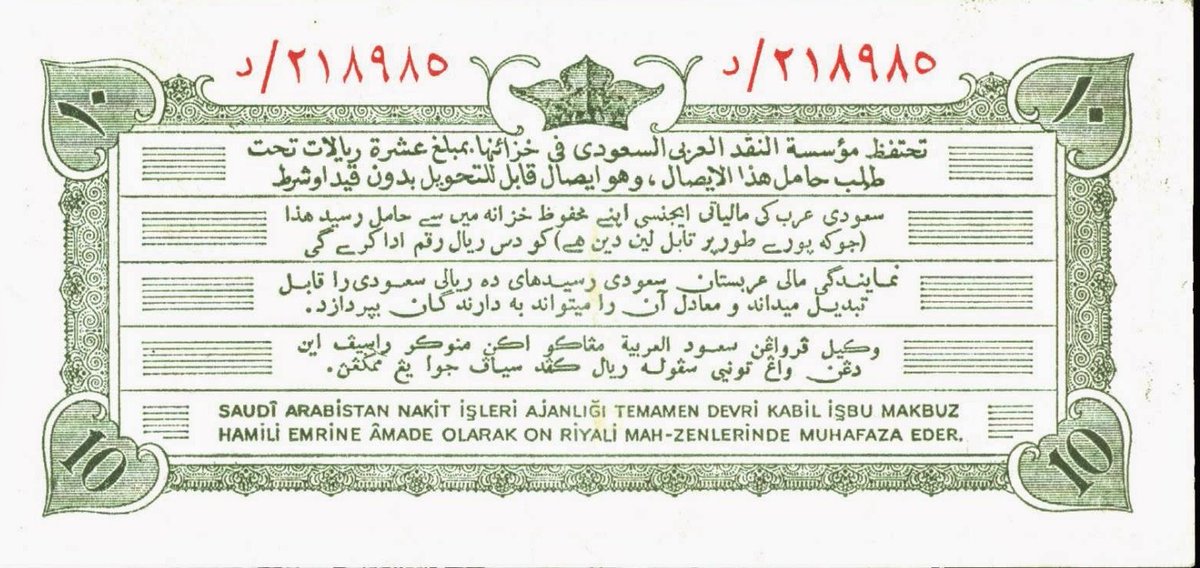 د/٢١٨٩٨٥ د/٢١٨٩٨٥
١٠ ١٠
تحتفظ مؤسسة النقد العربى السعودى فى خزائنها. بمبلغ عشرة ريالات تحت
طلب حامل هذا الايصال، وهو ايصال قابل للتحويل بدون قيد اوشرط
سعودی عرب کی مالیاتی ایجنسی اپنے محفوظ خزانه میں سے حامل رسید هذا
(جو که پورے طور پر قابل لین دین هے) کو دس ریال رقم ادا کرے گی
نمایندگی مالی عربستان سعودی رسیدهای ده ریالی سعودی را قابل
تبدیل میداند و معادل آن را میتواند به دارندگان بپردازد.
وكيل ڤرواڠن سعود العربية مڠاكو اكن منوكر راسيف اين
دڠن واڠ تونيي سڤوله ريال كڤد سياڤ جوا يڠ ممڬڠن.
SAUDÎ ARABİSTAN NAKİT İŞLERİ AJANLIĞI TEMAMEN DEVRİ KABİL İŞBU MAKBUZ
HAMİLİ EMRİNE ÂMADE OLARAK ON RİYALİ MAH-ZENLERİNDE MUHAFAZA EDER.
10 10